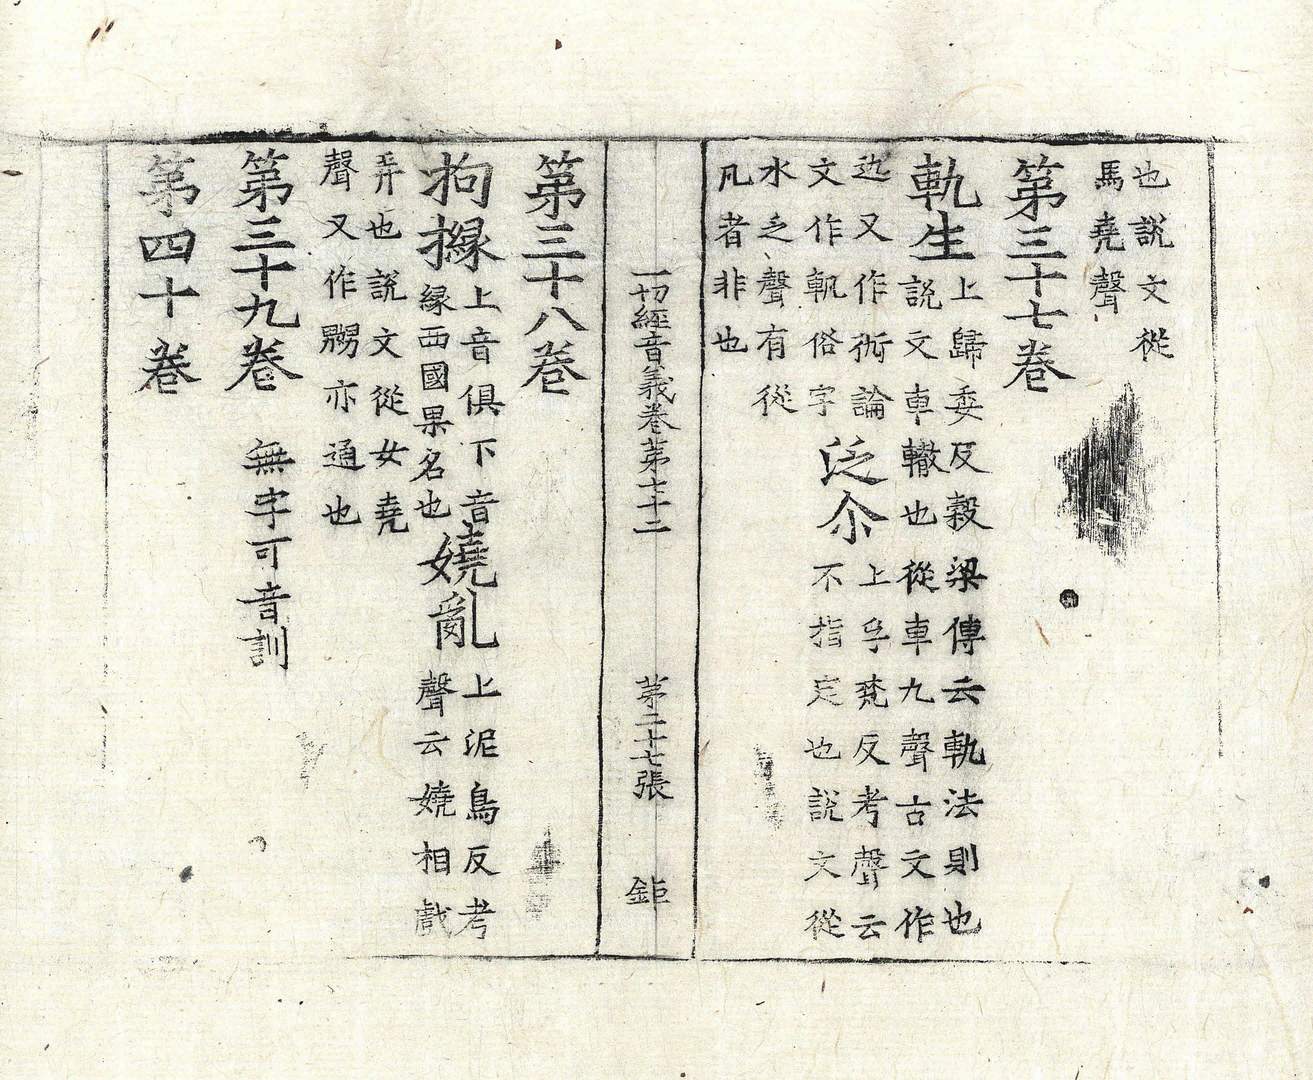 也說文從
馬堯聲
第三十七卷
軌生
上歸委反穀梁傳云軌法則也
說文車轍也從車九聲古文作
又作論
文作軓俗字
泛尒
上孚梵反考聲云
不指定也說文從
水乏聲有從
凡者非也
一切經音義卷苐七十二 苐二十七張 鉅
第三十八卷
拘掾
上音俱下音
縁西國果名也
嬈亂
上泥鳥反考
聲云嬈相戲
弄也說文從女堯
聲又作嬲亦通也
第三十九卷 無字可音訓
第四十卷